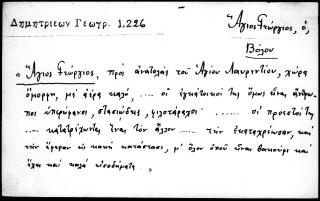 Δημητριεων Γεωγρ. 1,226
Ἅγιος Γεώργιος, ὁ,
Βόλου
« Ἅγιος Γεώργιος, πρὸς ἀνατολὰς τοῦ Ἁγίου Λαυρεντίου, χώρα
ὄμορφη, μὲ ἀέρα καλό, .... οἱ ἐγκάτοικοί της ὅμως εἶναι ἄνθρω-
ποι ὑπερήφανοι, στασιώδεις, φιλοτάραχοι ...... οἱ προεστοί της
.... κατατρέχωντας ἕνας τὸν ἄλλον ..... τὴν ἐκαταχρέωσαν, καὶ
τὴν ἔφεραν εἰς κακὴ κατάστασι, μ' ὅλον ὁποῦ εἶναι βακούμι καὶ
ἔχει καὶ καλὰ εἰσοδήματα »